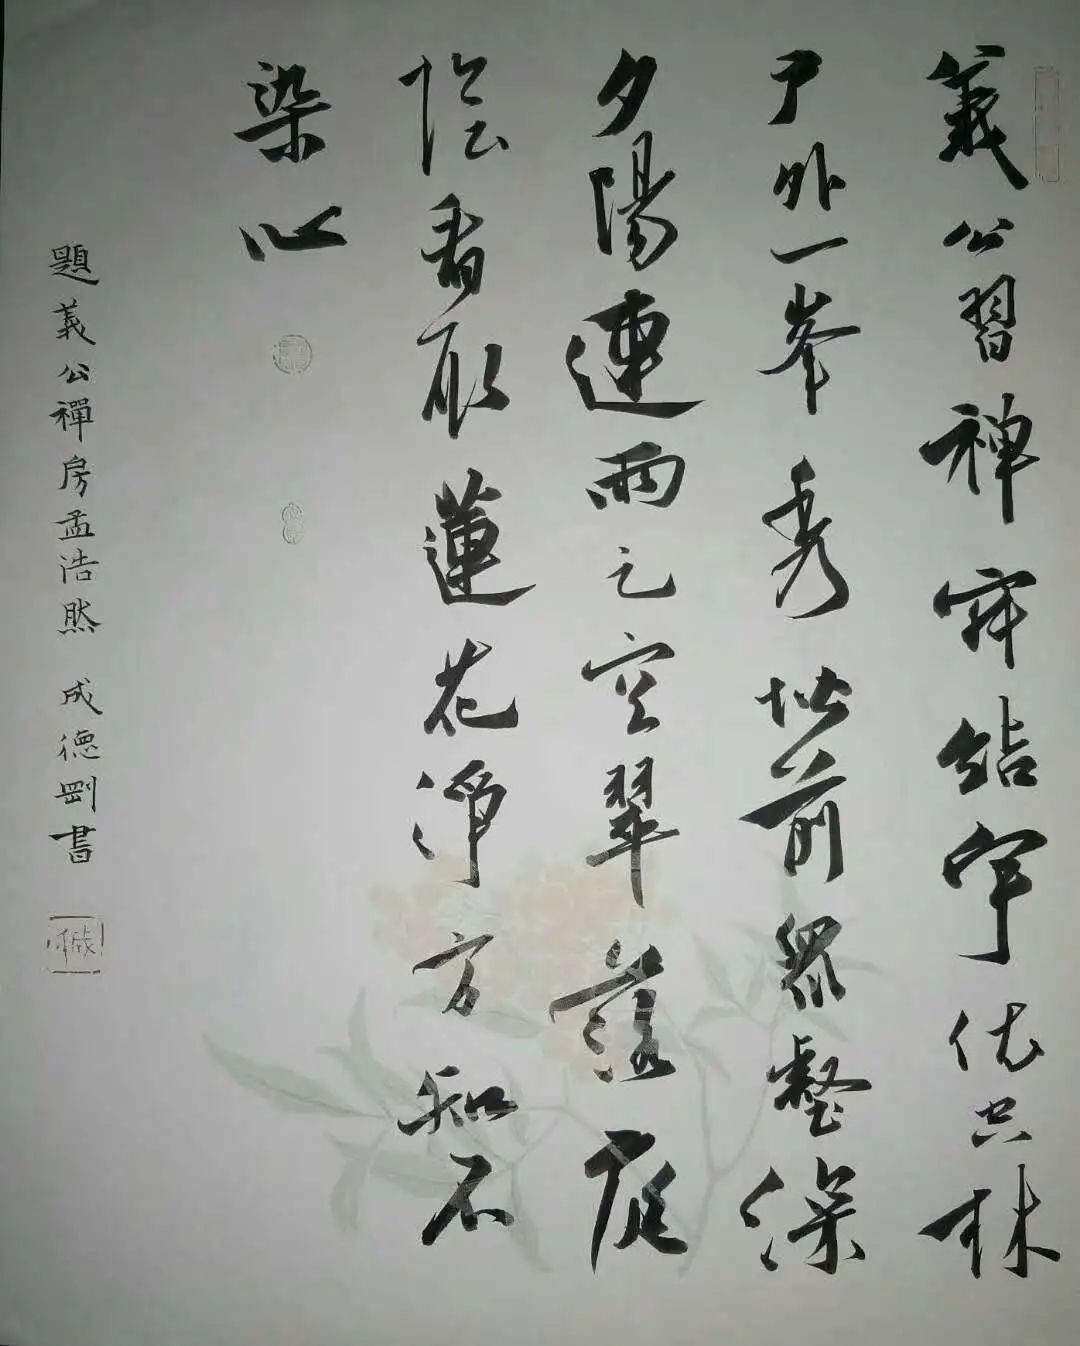 義公習禅寂結宇依空林
戶外一峯秀堦前眾壑深
夕陽連雨足空翠落庭
陰看取蓮花淨方知不
染心
題義公禪房孟浩然 成德剛書